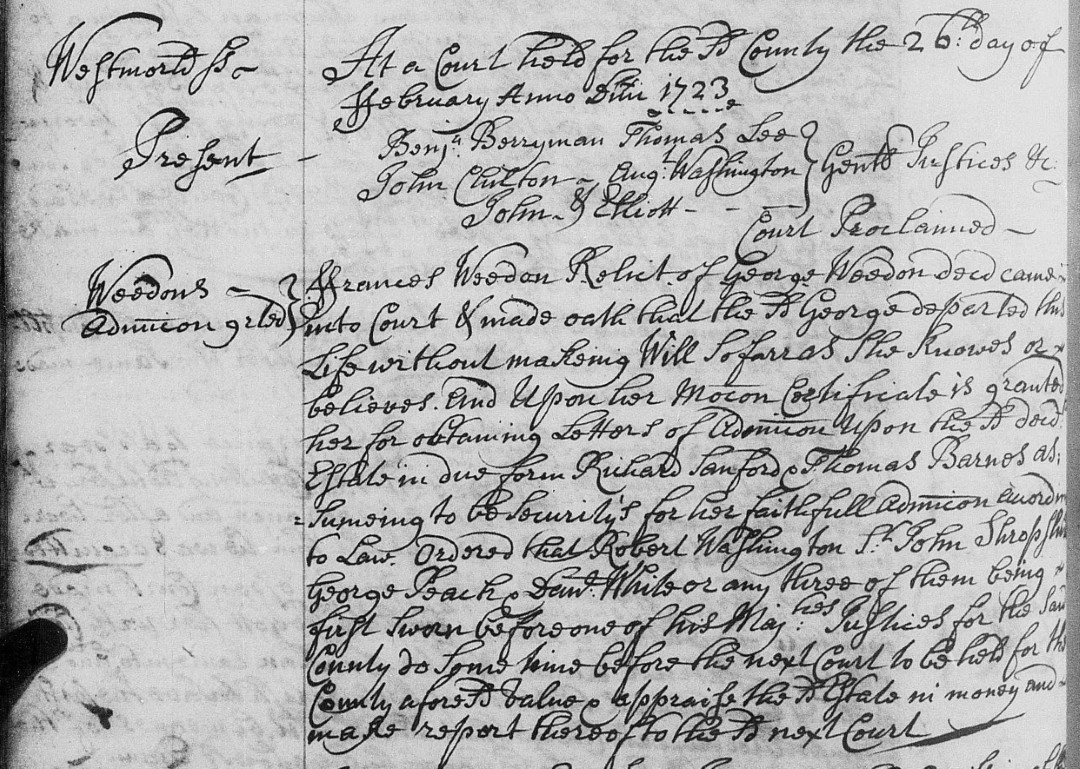 Westmorld ss~
At a Court held for the sd County the 26th day of
ffebruary Anno Dni 1723
Present
Benja Berryman Thomas Lee
John Chilton Augt Washington } Gents Justices &c
John Elliott
Court Proclaimed
Weedons
Admicon grted }
ffrances Weedon Relict of George Weedon decd came
into Court & made oath that the sd George departed this
Life without makeing Will So farr as She knowes or
believes. And Upon her Mocon Certificate is granted
her for obtaining Letters of Admicon Upon the sd decd
Estate in due form Richard Sanford & Thomas Barnes as,
sumeing to be Security's for her faithfull Admicon accordin
to Law. Ordered that Robert Washington Sr John Shropshire
George Peach & Dan: White or any three of them being
first Sworn before one of his Majties Justices for the Said
County do Some time before the next Court to be held for this
County aforesd Value & appraise the sd Estate in money and
make report thereof to the sd next Court